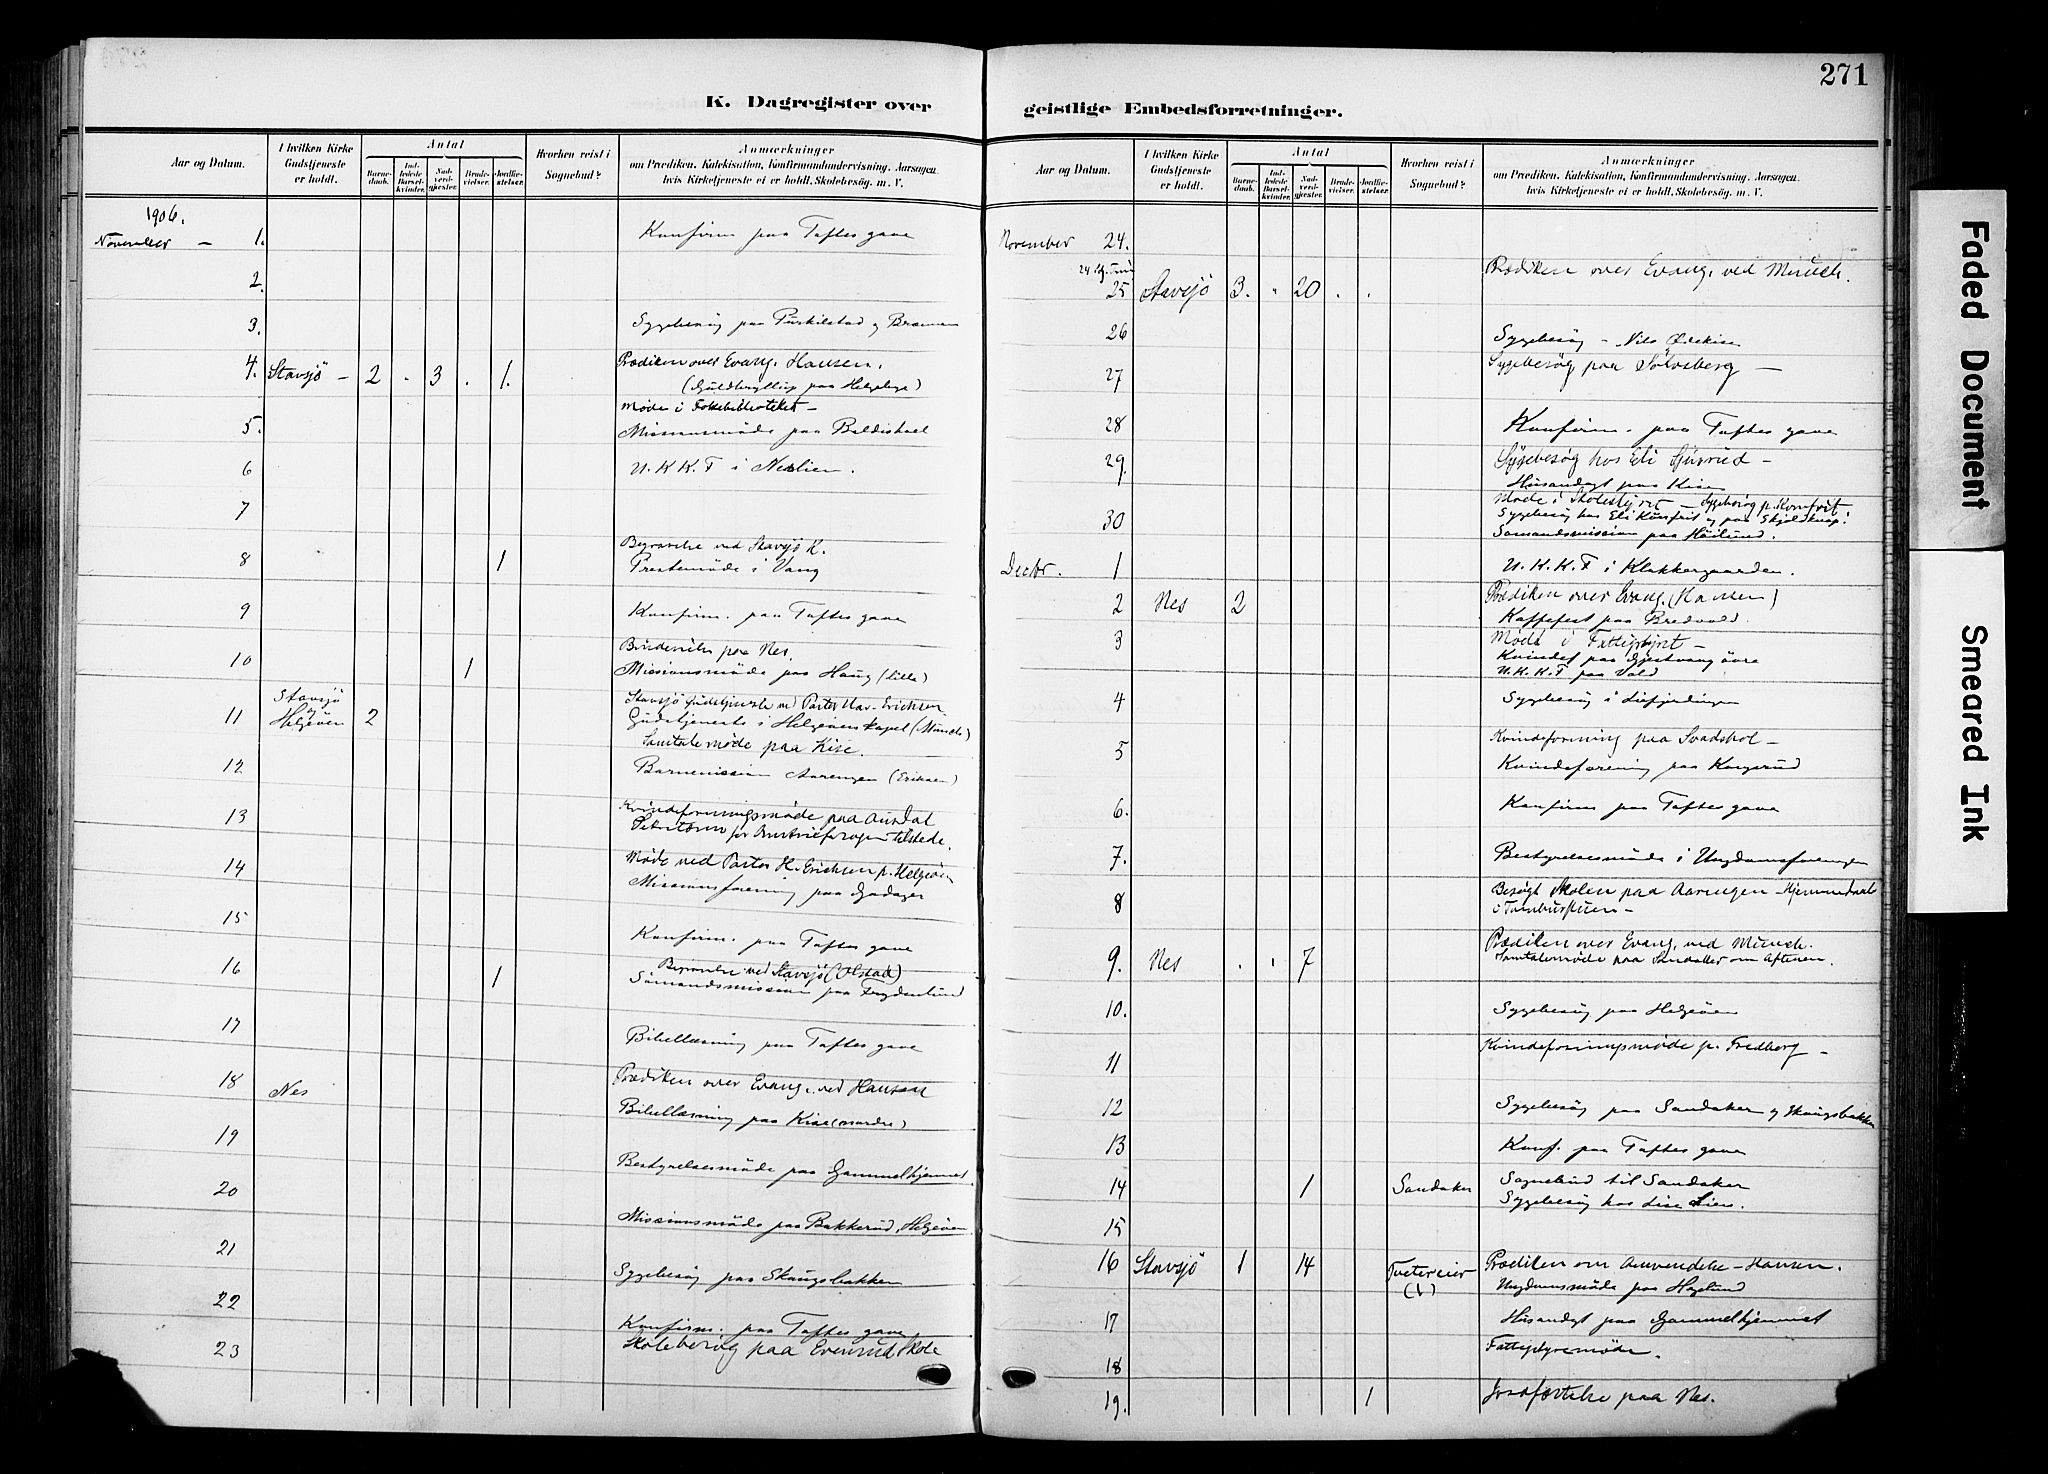 271
K. Dagregister over geistlige Embedsforretninger.
Aar og Datum.
I hvilken Kirke Gudstjeneste er holdt.
Antal
Barnedaab.
Indledede Barselkvinder.
Nadverdgjester.
Brudevielser.
Jordfæstelser.
Hvorhen reist i Sognebud?
Anmærkninger
om Prædiken, Katekisation, Konfirmandundervisning, Aarsagen, hvis Kirketjeneste ei er holdt, Skolebesøg, m. V.
1906.
November — 1. Konfirm paa Toftes gave
2.
3. Sygebesøg paa Purkilstad og
4. Stavsjö — 2 " 3 . 1. Prædiken over Evang. Hansen.
(Guldbryllup paa Helgeby)
Møde i Folkebibliotheket —
5. Missionsmøde paa Baldishoel
6 U. K. K. F i Neslien.
7
Begravelse ved Stavsjö K.
8 1 Prestemøde i Vang
9 Konfirm. paa Toftes gave
Brudevielse paa Nes.
10 1 Missionsmøde paa Haug (lille)
Stavsjö og Stavsjö Gudstjeneste ved Pastor Erichsen
11 Helgøen 2 Gudstjeneste i Helgøens kapel (Munch)
Samtalemøde paa Kise.
12 Barnemission Aarengen (Eriksen)
13 Kvindeforeningsmøde paa
tilstede.
14 Møde ved Pastor H. Erichsen p. Helgøen
Missionsforening paa
15
Konfirm. paa Toftes gave
16 1 Begravelse ved Stavsjö (Ulstad)
Sømandsmission paa Frydenlund
17
Bibellæsning paa Toftes gave
18 Nes Prædiken over Evang. ved Hansen
Bibellæsning paa Kise (nordre)
19
Bestyrelsesmøde paa Gammelhjemmet
20
Missionsmøde paa Bakkerud, Helgøen
21
Sygebesøg paa Skaugsbakken
22
Konfirm. paa Toftes gave
23 Skolebesøg paa Evenrud Skole
Aar og Datum.
I hvilken Kirke Gudstjeneste er holdt.
Antal
Barnedaab.
Indledede Barselkvinder.
Nadverdgjester.
Brudevielser.
Jordfæstelser.
Hvorhen reist i Sognebud?
Anmærkninger
om Prædiken, Katekisation, Konfirmandundervisning, Aarsagen, hvis Kirketjeneste ei er holdt, Skolebesøg, m. V.
November 24.
24 S. Trin Prædiken over Evang. ved Munch.
25 Stavsjö 3. " 20 . .
26 Sygebesøg — Nils
27 Sygebesøg paa Sølvsberg —
28 Konfirm. paa Toftes gave
29. Sygebesøg hos Eli —
Husandagt paa Kise
Møde i Skolestyret — Sygebesøg p. Kvmfort.
30 Sygebesøg hos Eli og paa
Sømandsmission paa Høilund.
Decbr. 1 U. K. K. F i Klakkergaarden.
2 Nes 2 Prædiken over Evang. (Hansen)
Kaffefest paa Bredvold.
3 Møde i Fattigstyret —
Kvindef paa Gjestvang øvre
U. K. K. F paa Vold
4 Sygebesøg i
5 Kvindeforening paa —
Kvindeforening paa
6. Konfirm paa Toftes gave
7. Bestyrelsesmøde i Ungdomsforeningen
8 Besøgt Skolen paa Aarengen — Hjemmedaab
9. Nes . . 7 Prædiken over Evang. ved Munch.
Samtalemøde paa Sandaker om Aftenen.
10. Sygebesøg paa Helgøen
11 Kvindeforeningsmøde p. Fredberg —
12 Sygebesøg paa Sandaker og Skaugsbakken
13 Konf. paa Toftes gave
14 1 Sandaker Sognebud til Sandaker
Sygebesøg hos Lise Lien.
15
16 Stavsjö 1 14 (1) Prædiken om Omvendelse — Hansen.
Ungdomsmøde paa Høglund
17 Husandagt paa Gammelhjemmet
18 Fattigstyremøde.
19. 1 Jordfæstelse paa Nes.
Faded Document
Smeared Ink